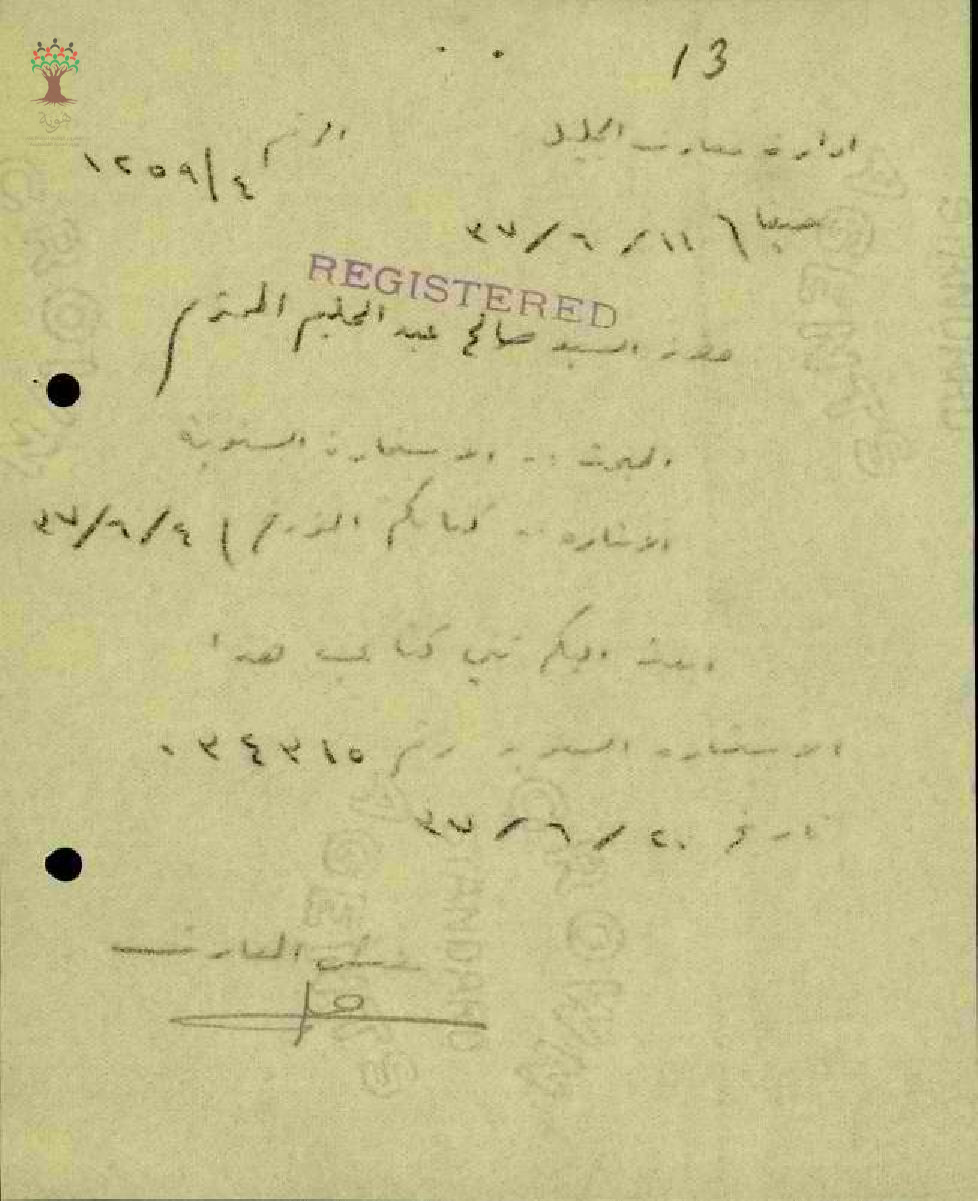 13
ادارة معارف الجليل
الرقم ١٢٥٩/٤
صفد ١١/٦/٣٧
REGISTERED
حضرة السيد صالح عبد الحليم المحترم
المبحث :- الاستمارة السنوية
الاشارة :- كتابكم المؤرخ ٤/٦/٣٧
ابعث اليكم طي كتابي هذا
الاستمارة السنوية رقم ٠٣٤٣١٥
تاريخ ٢٠/٦/٣٧
مفتش المعارف
هوية